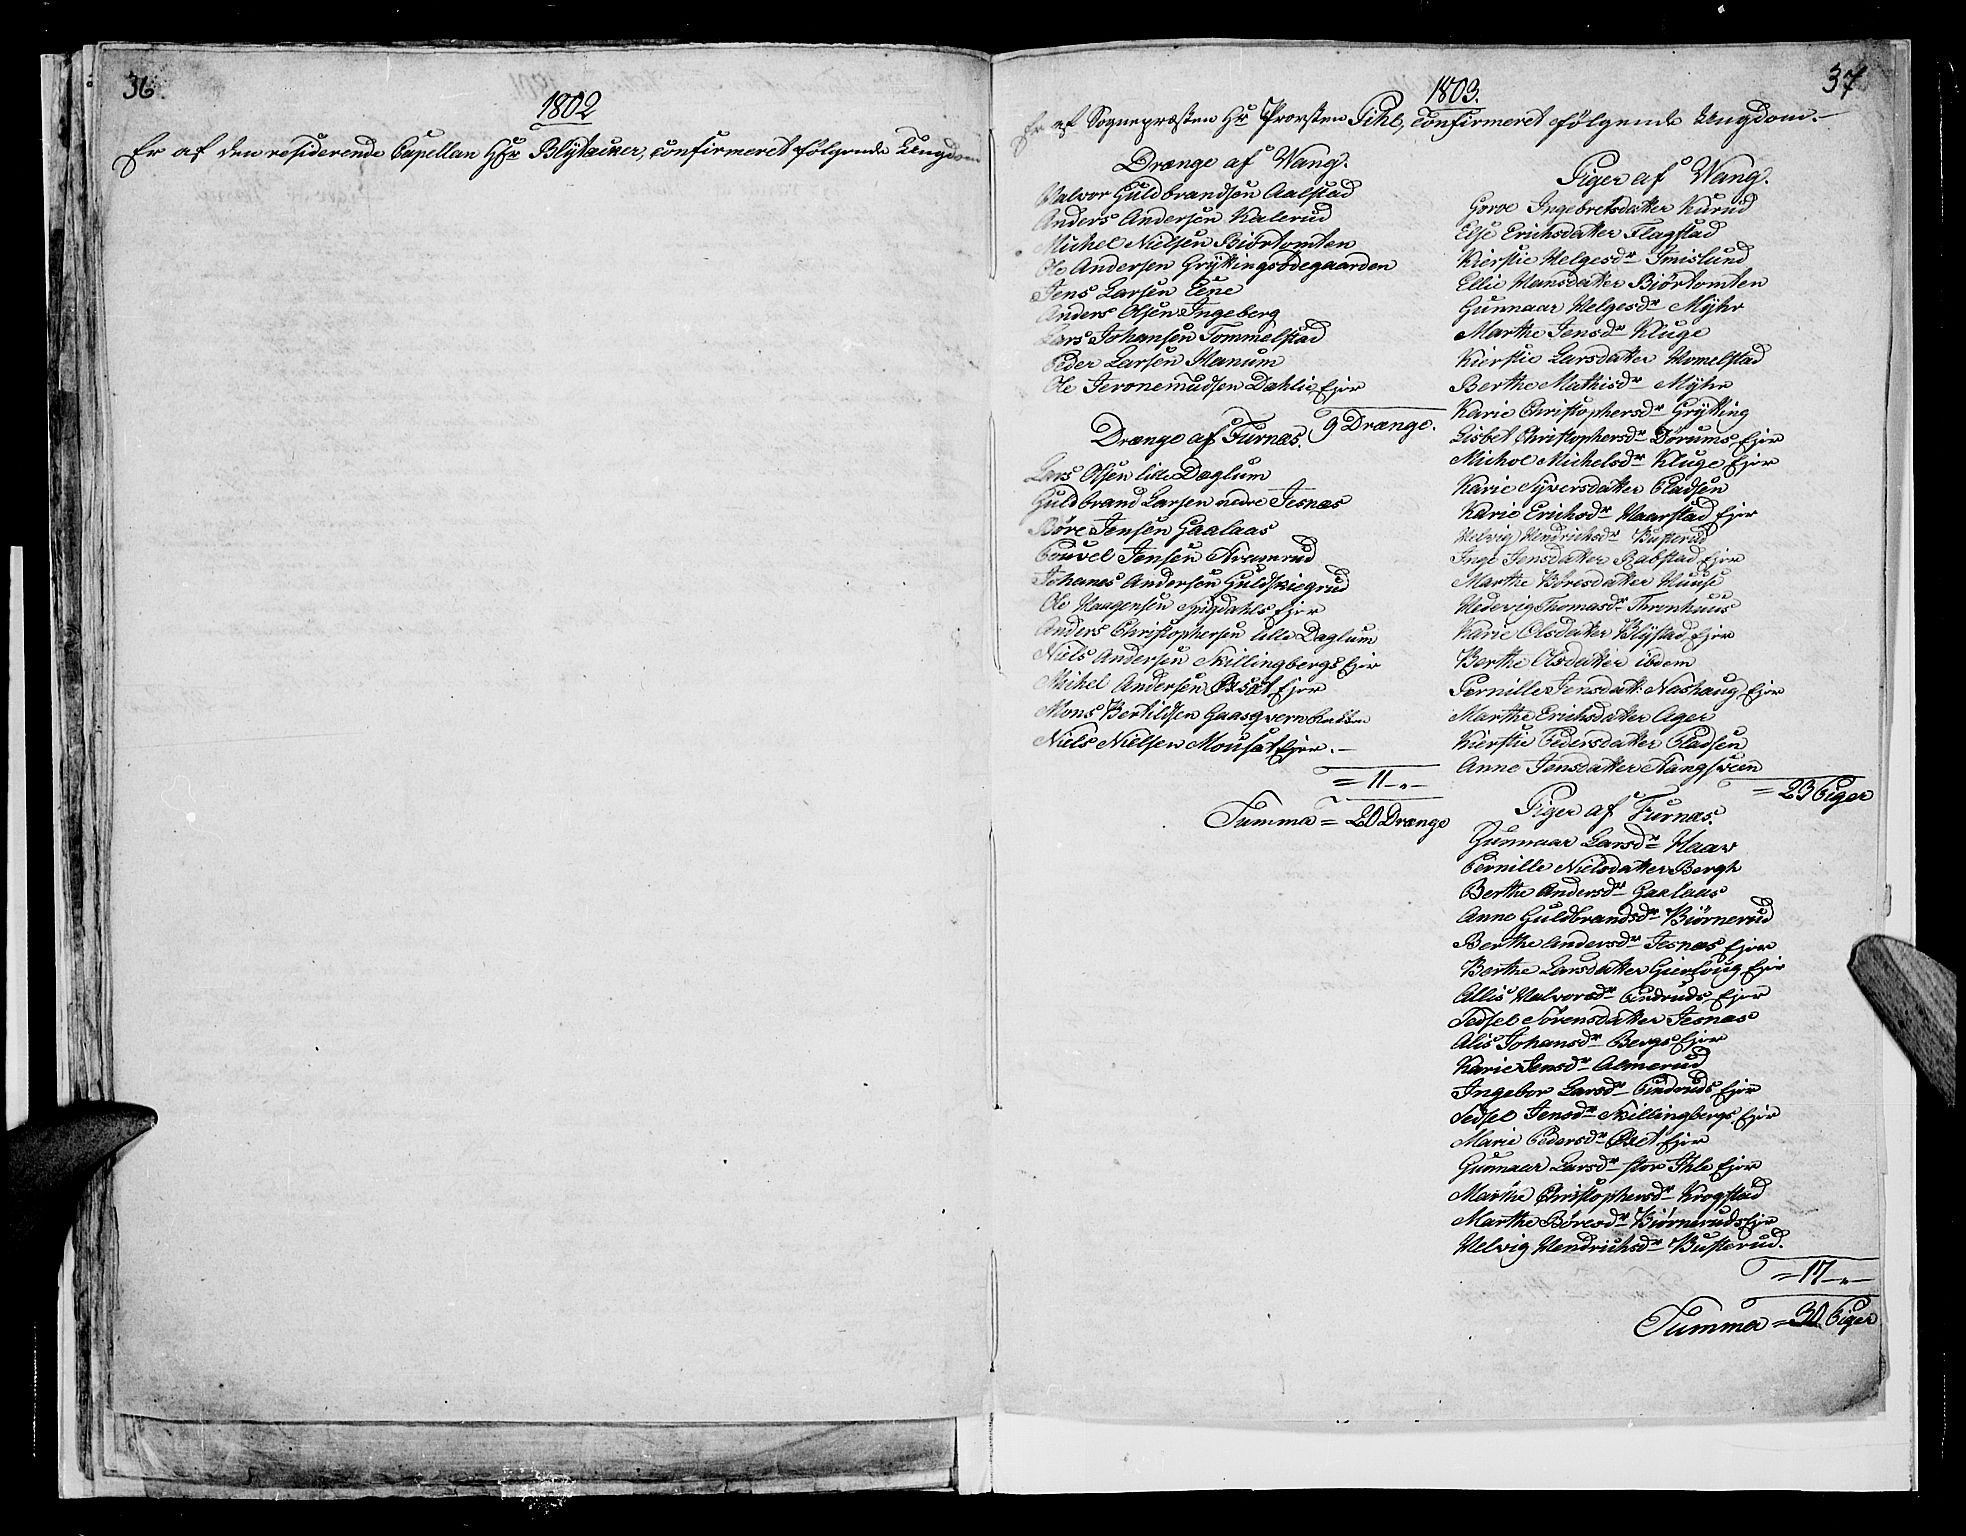 36
1802
Er af den residerende Capellan Hr Blÿtacker, confirmeret følgende Ungdom
37
1803.
Er af Sognepræsten Hr Provsten Pihl, confirmeret følgende Ungdom.
Drænge af Wang.
Halvor Guldbrandsen Aalstad
Anders Andersen Kalerud
Michel Nielsen Biørtomten
Ole Andersen Grÿttingsødegaarden
Jens Larsen Eene
Anders Olsen Ingeberg
Lars Johansen Tommelstad
Peder Larsen Manum
Ole Jeronemudsen Dæhlie Ejer
9 Drænge.
Drænge af Furnæs.
Lars Olsen lille Dæglum
Guldbrand Larsen nedre Jesnæs
Børe Jensen Gaalaas
Pouvel Jensen Kramrud
Johanes Andersen Guldskiegrud
Ole Haagensen Ejer
Anders Christophersen lille Daglum
Niels Andersen Skillingbergs Ejer
Michel Andersen Ejer
Mons Bertildsen Gaasqvern
Niels Nielsen Mousæt Ejer.
= 11 -„-
Summa = 20 Drænge
Piger af Wang.
Goroe Ingebretsdatter Kurud
Else Erichsdatter Flagstad
Kierstie Helgesdr Smislund
Ellie Hansdatter Biørtomten
Gunnaar Helgesdr Mÿhr
Marthe Jensdr Kluge
Kierstie Larsdatter Homelstad
Berthe Mathisdr Mÿhr
Karie Christophersdr Grÿtting
Lisbet Christophersdr Dørums Ejer
Michoe Michelsdr Kluge Ejer
Karie Syversdatter Pladsen
Karie Erichsdr Haarstad Ejer
Helvig Hendrichsdr Busterud
Inge Jensdatter Rabstad Ejer
Marthe Børesdatter Huuse
Hedevig Thomasdr Thronhuus
Karie Olsdatter Blÿstad Ejer
Berthe Olsdatter ibdem
Pernille Jensdatt: Nashaug Ejer
Marthe Erichsdatter Ager
Kierstie Pedersdatter Pladsen
Anne Jensdatter Aangsveen
= 23 Piger
Piger af Furnæs.
Gunnaar Larsdr Haav
Pernille Nielsdatter Bergh
Berthe Andersdr Gaalaas
Anne Guldbrandsdr Biørnerud
Berthe Andersdr Jesnæs Ejer
Berthe Larsdatter Gierloug Ejer
Allis Halvorsdr Pindruds Ejer
Sedsel Sørensdatter Jesnæs
Alis Johansdr Bergs Ejer
Karie Jensdr Almerud
Ingebor Larsdr Pindruds Ejer
Sedsel Jensdr Skillingbergs Ejer
Marie Pedersdr Ejer
Gunnaar Larsdr stor Ihle Ejer
Marthe Christophersdr Krogstad
Marthe Børesdr Biørneruds Ejer
Helvig Hendrichsdr Busterud.
= 17 -„-
Summa = 30 Piger